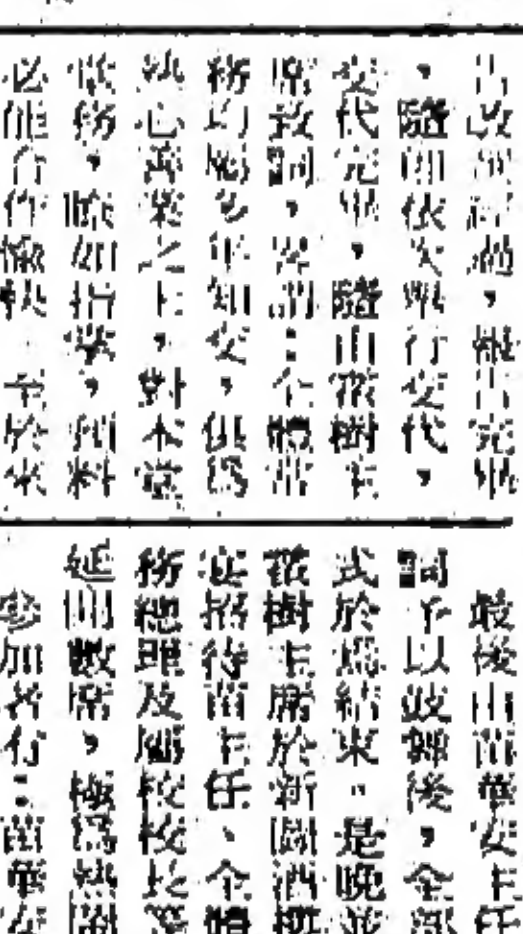 出改選經過,報告完畢
,隨即依次舉行交代,
交代完畢,隨由花樹主
席致詞,畧謂:全體常
務均屬多年知交,俱爲
熱心善業之士,對本堂
堂務,瞭如指掌,預料
必能合作愉快 至於來
最後由苗華安主任
詞予以鼓舞後,全部
式於焉結束。是晚並
花樹主席於新 酒
宴招待苗主任、全體
務總理及屬校校長等
延開數席,極爲熱鬧
參加者有:苗華安